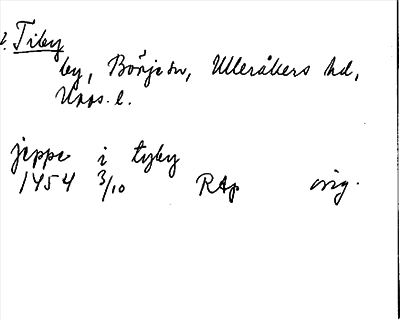 2. Tiby
by, Börje sn, Ulleråkers hd,
Upps. l.
jeppe i tyby
1454 3/10 RAp orig.